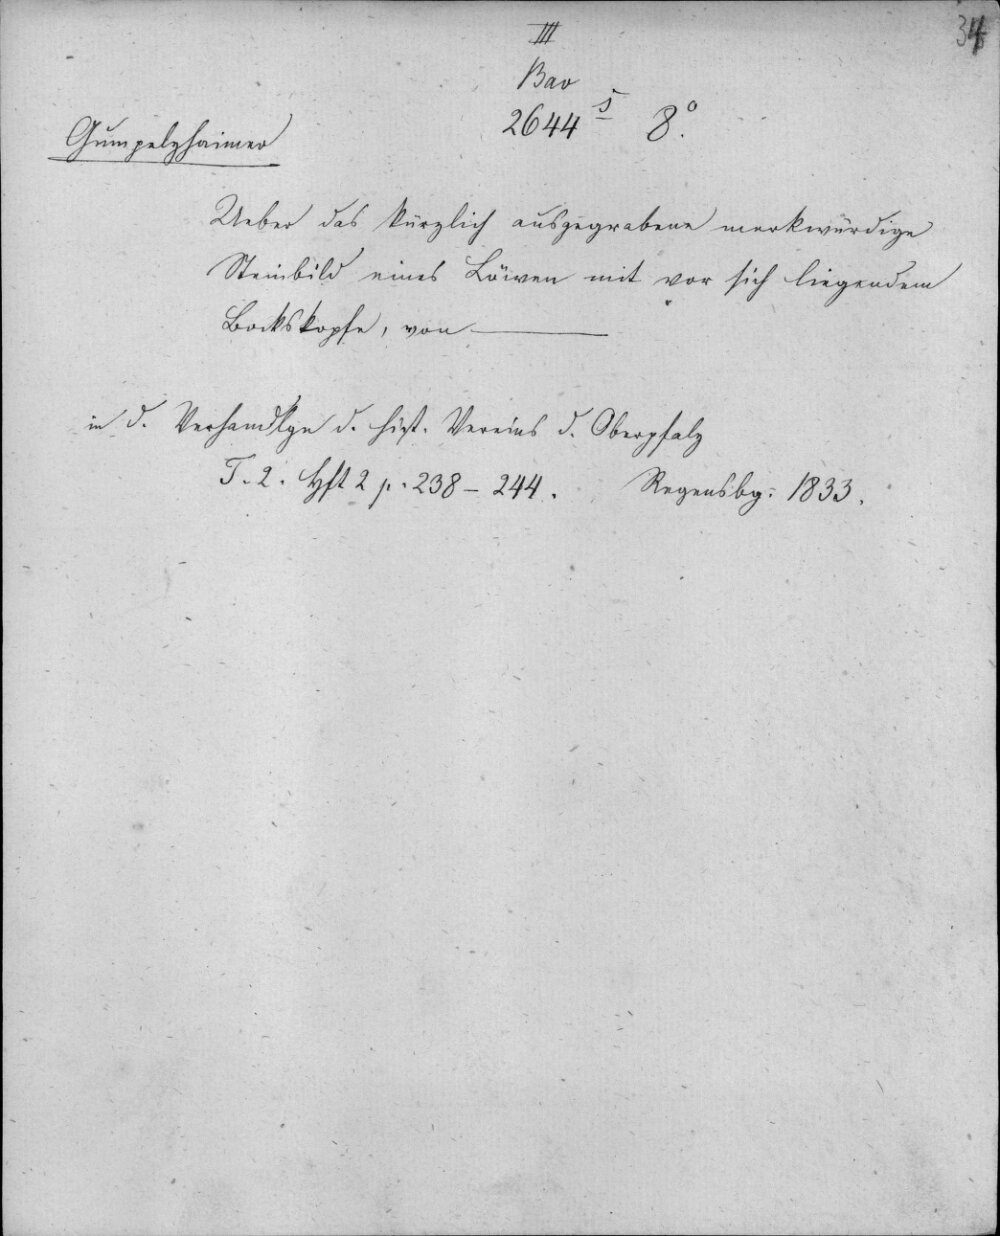 34
III
Bav
2644 s 8.°
Gumpelzhaimer
Ueber das kürzlich ausgegrabene merkwürdige
Steinbild eines Löwen mit vor sich liegendem
Bockskopfe, von ———
in d. Verhandlgn d. hist. Vereins d. Oberpfalz
T. 2. Hft 2 p. 238 – 244. Regensbg. 1833.